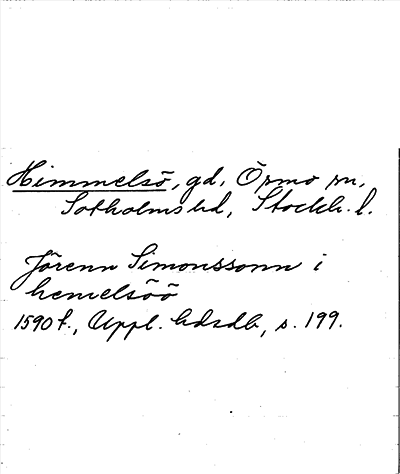 Himmelsö, gd, Ösmo sn,
Sotholms hd, Stockh. l.
Jörenn Simonssonn i
hemelsöö
1590 f., Uppl. hdsdb, s. 199.